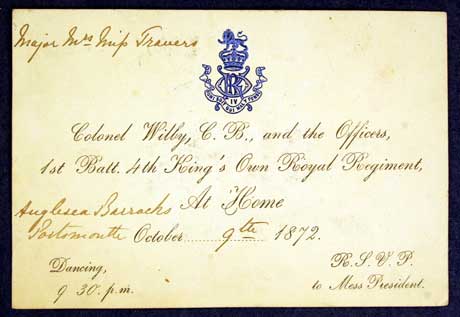 Major Mrs Miss Travers
IV
HONI SOIT QUI MAL Y PENSE
Colonel Wilby, C. B., and the Officers,
1st Batt. 4th King's Own Royal Regiment,
At Home
Anglesea Barracks
Portsmouth October 9th 1872.
Dancing,
9 30. p.m.
R. S. V. P.
to Mess President.